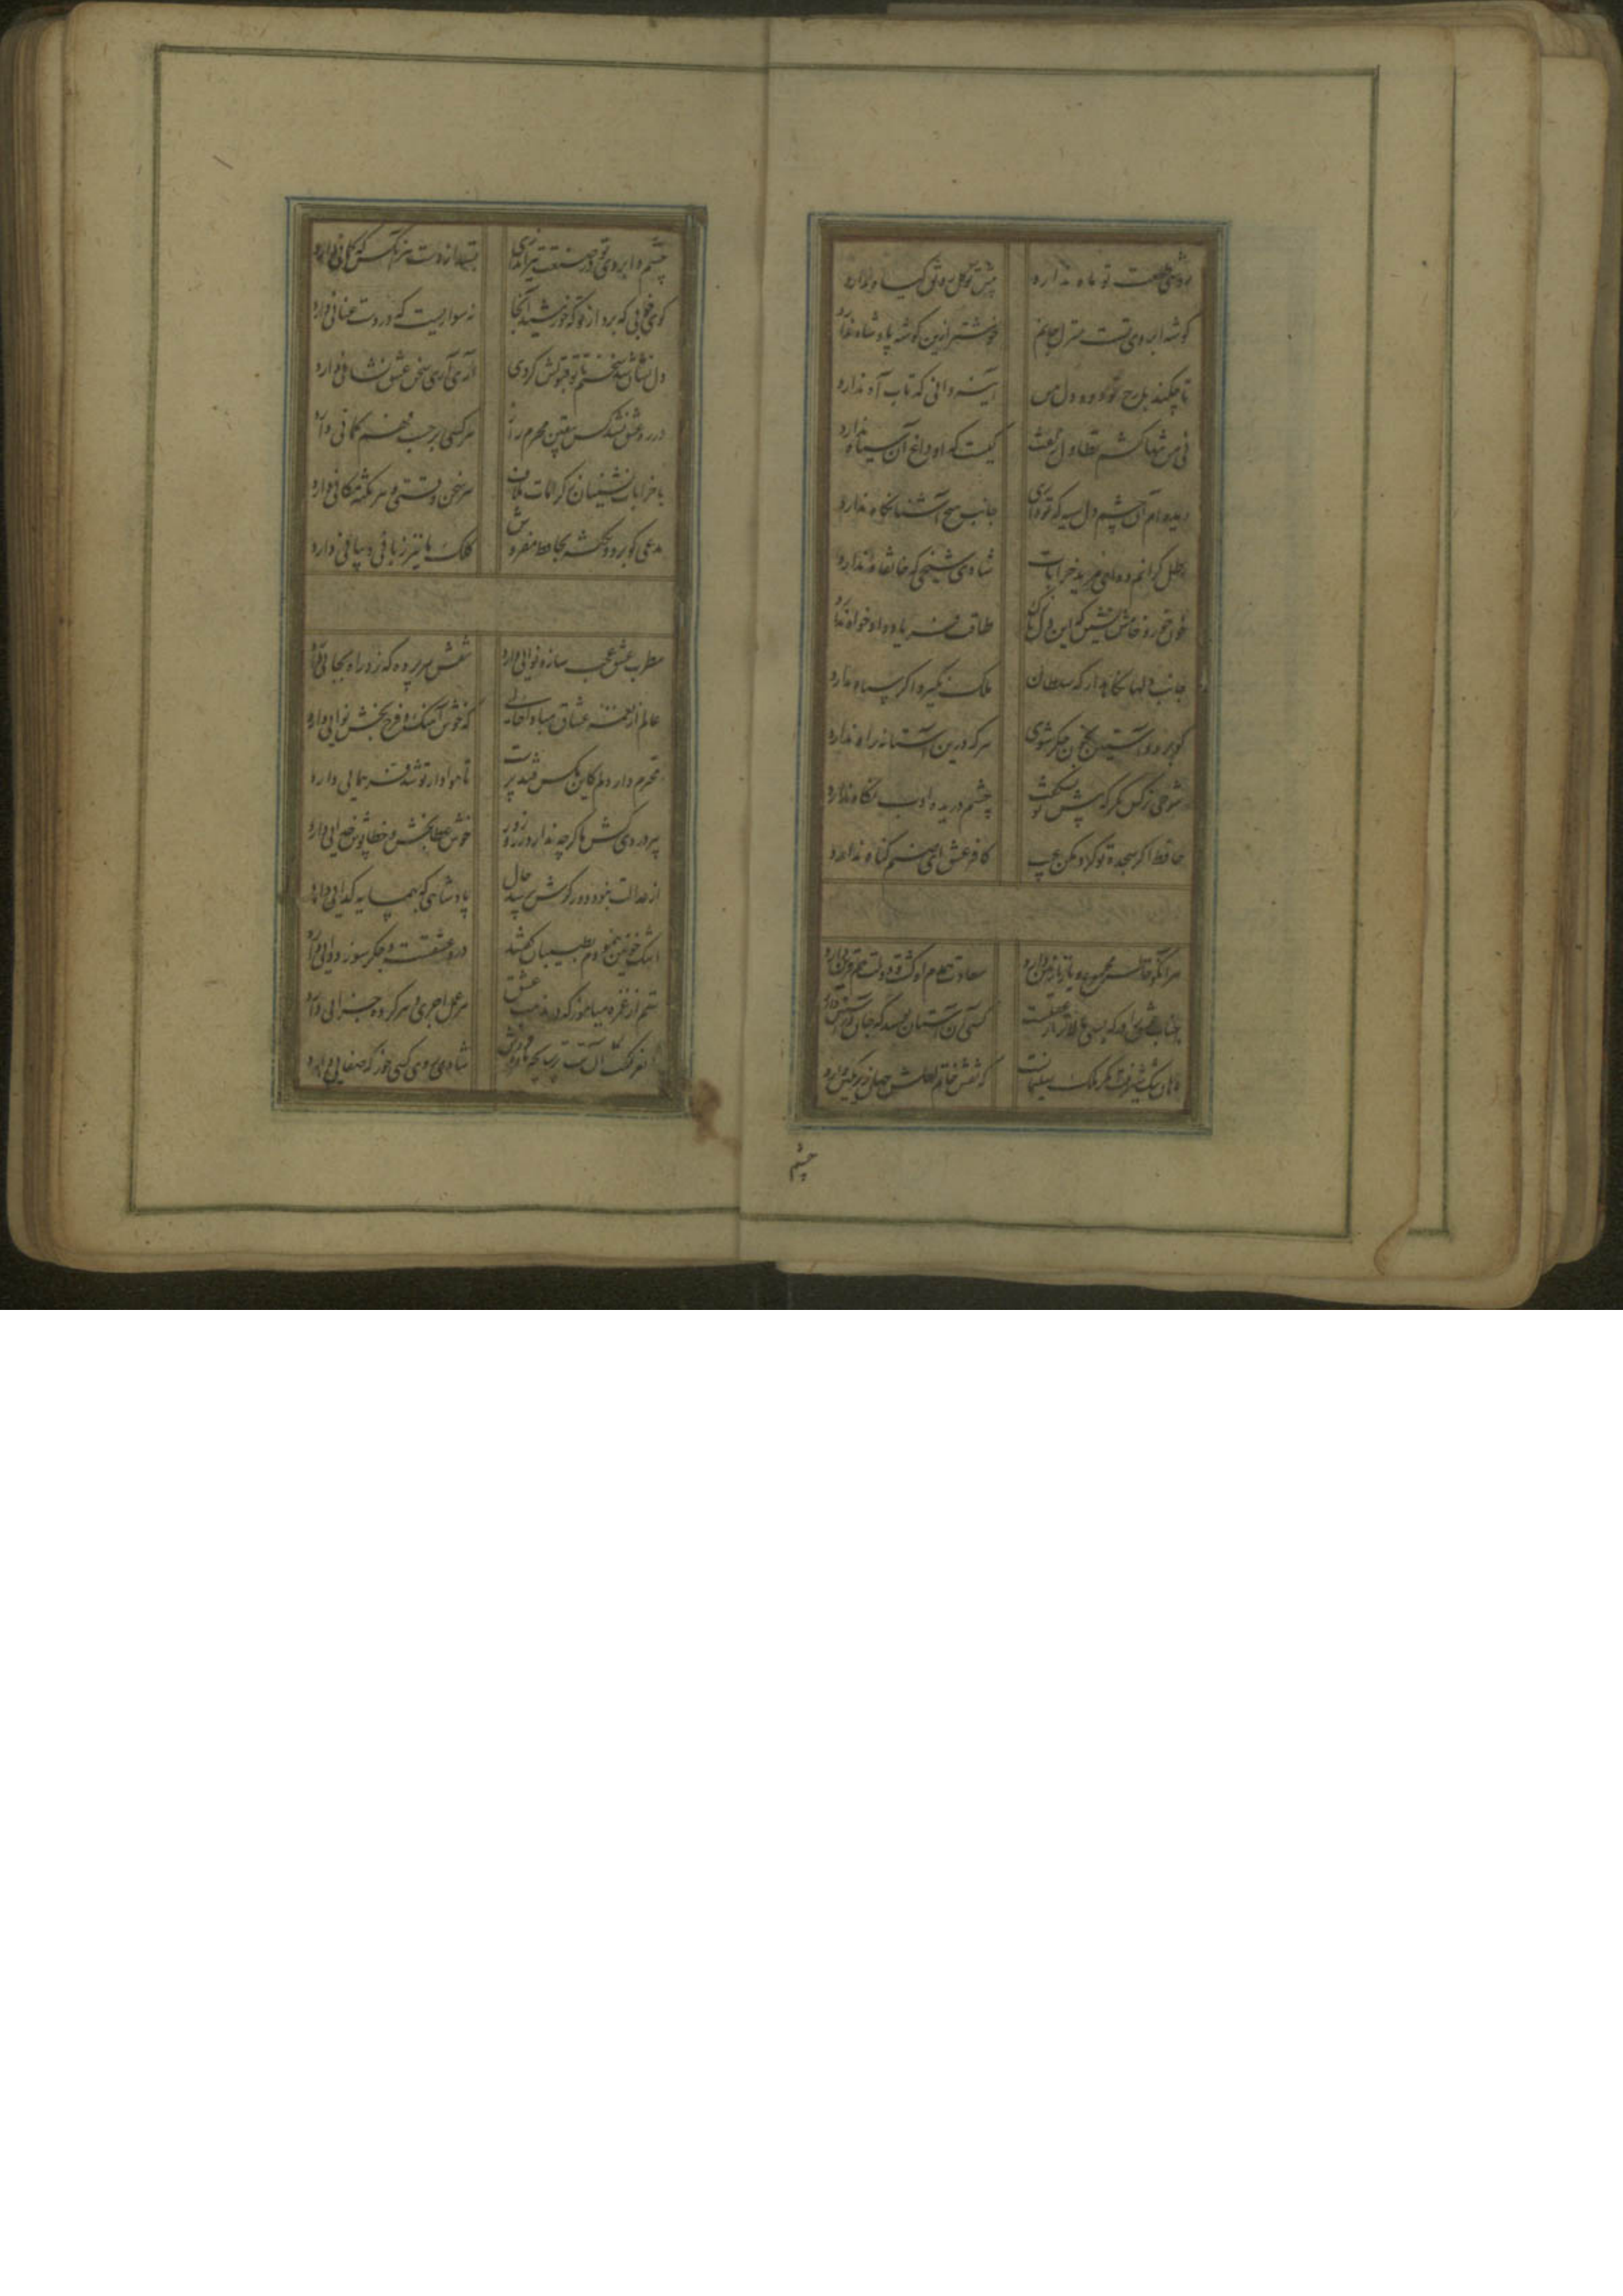 روشنی طلعت تو ماه ندارد پیش تو گل رونق گیاه ندارد
گوشه ابروی تست منزل جانم خوشتر ازین گوشه پادشاه ندارد
تا چکند با رخ تو دود دل من آینه دانی که تاب آه ندارد
نی من تنها کشم تطاول زلفت کیست که او داغ آن سیاه ندارد
دیده ام آن چشم دل سیه که تو داری جانب هیچ آشنا نگاه ندارد
رطل گرانم ده ای مرید خرابات شادی شیخی که خانقاه ندارد
خون خور و خامش نشین که این دل نازک طاقت فریاد دادخواه ندارد
جانب دلها نگاه دار که سلطان ملک نگیرد اگر سپاه ندارد
گو برو و آستین بخون جگر شوی هر که درین آستانه راه ندارد
شوخی نرگس نگر که پیش تو بشکفت چشم دریده ادب نگاه ندارد
حافظ اگر سجده تو کرد مکن عیب کافر عشق ای صنم گناه ندارد
هر آنکو خاطر مجموع و یار نازنین دارد سعادت همدم او گشت و دولت همقرین دارد
جناب عشق را درگه بسی بالاتر از عقلست کسی آن آستان بوسد که جان در آستین دارد
دهان تنگ شیرینت مگر ملک سلیمانست که نقش خاتم لعلش جهان زیر نگین دارد
چشم
چشم و ابروی تو در صنعت تیراندازی بستد از دست هر آنکس که کمانی دارد
گوی خوبی که برد از تو که خورشید آنجا نه سواریست که در دست عنانی دارد
دل نشان شد سخنم تا تو قبولش کردی آری آری سخن عشق نشانی دارد
در ره عشق نشد کس بیقین محرم راز هر کسی بر حسب فهم گمانی دارد
با خرابات نشینان ز کرامات ملاف هر سخن وقتی و هر نکته مکانی دارد
مدعی گو برو و نکته بحافظ مفروش کلک ما نیز زبانی و بیانی دارد
مطرب عشق عجب ساز و نوایی دارد نقش هر پرده که زد راه بجایی دارد
عالم از نغمه عشاق مبادا خالی که خوش آهنگ و فرح بخش نوایی دارد
محترم دار دلم کاین مگس قند پرست تا هوادار تو شد فر همایی دارد
پیر دردی کش ما گرچه ندارد زر و زور خوش عطا بخش و خطا پوش خدایی دارد
از عدالت نبود دور گرش پرسد حال پادشاهی که بهمسایه گدایی دارد
اشک خونین بنمودم بطبیبان گفتند درد عشقست و جگر سوز دوایی دارد
ستم از غمزه میاموز که در مذهب عشق هر عمل اجری و هر کرده جزایی دارد
نغز گفت آن بت ترسا بچه باده فروش شادی روی کسی خور که صفایی دارد